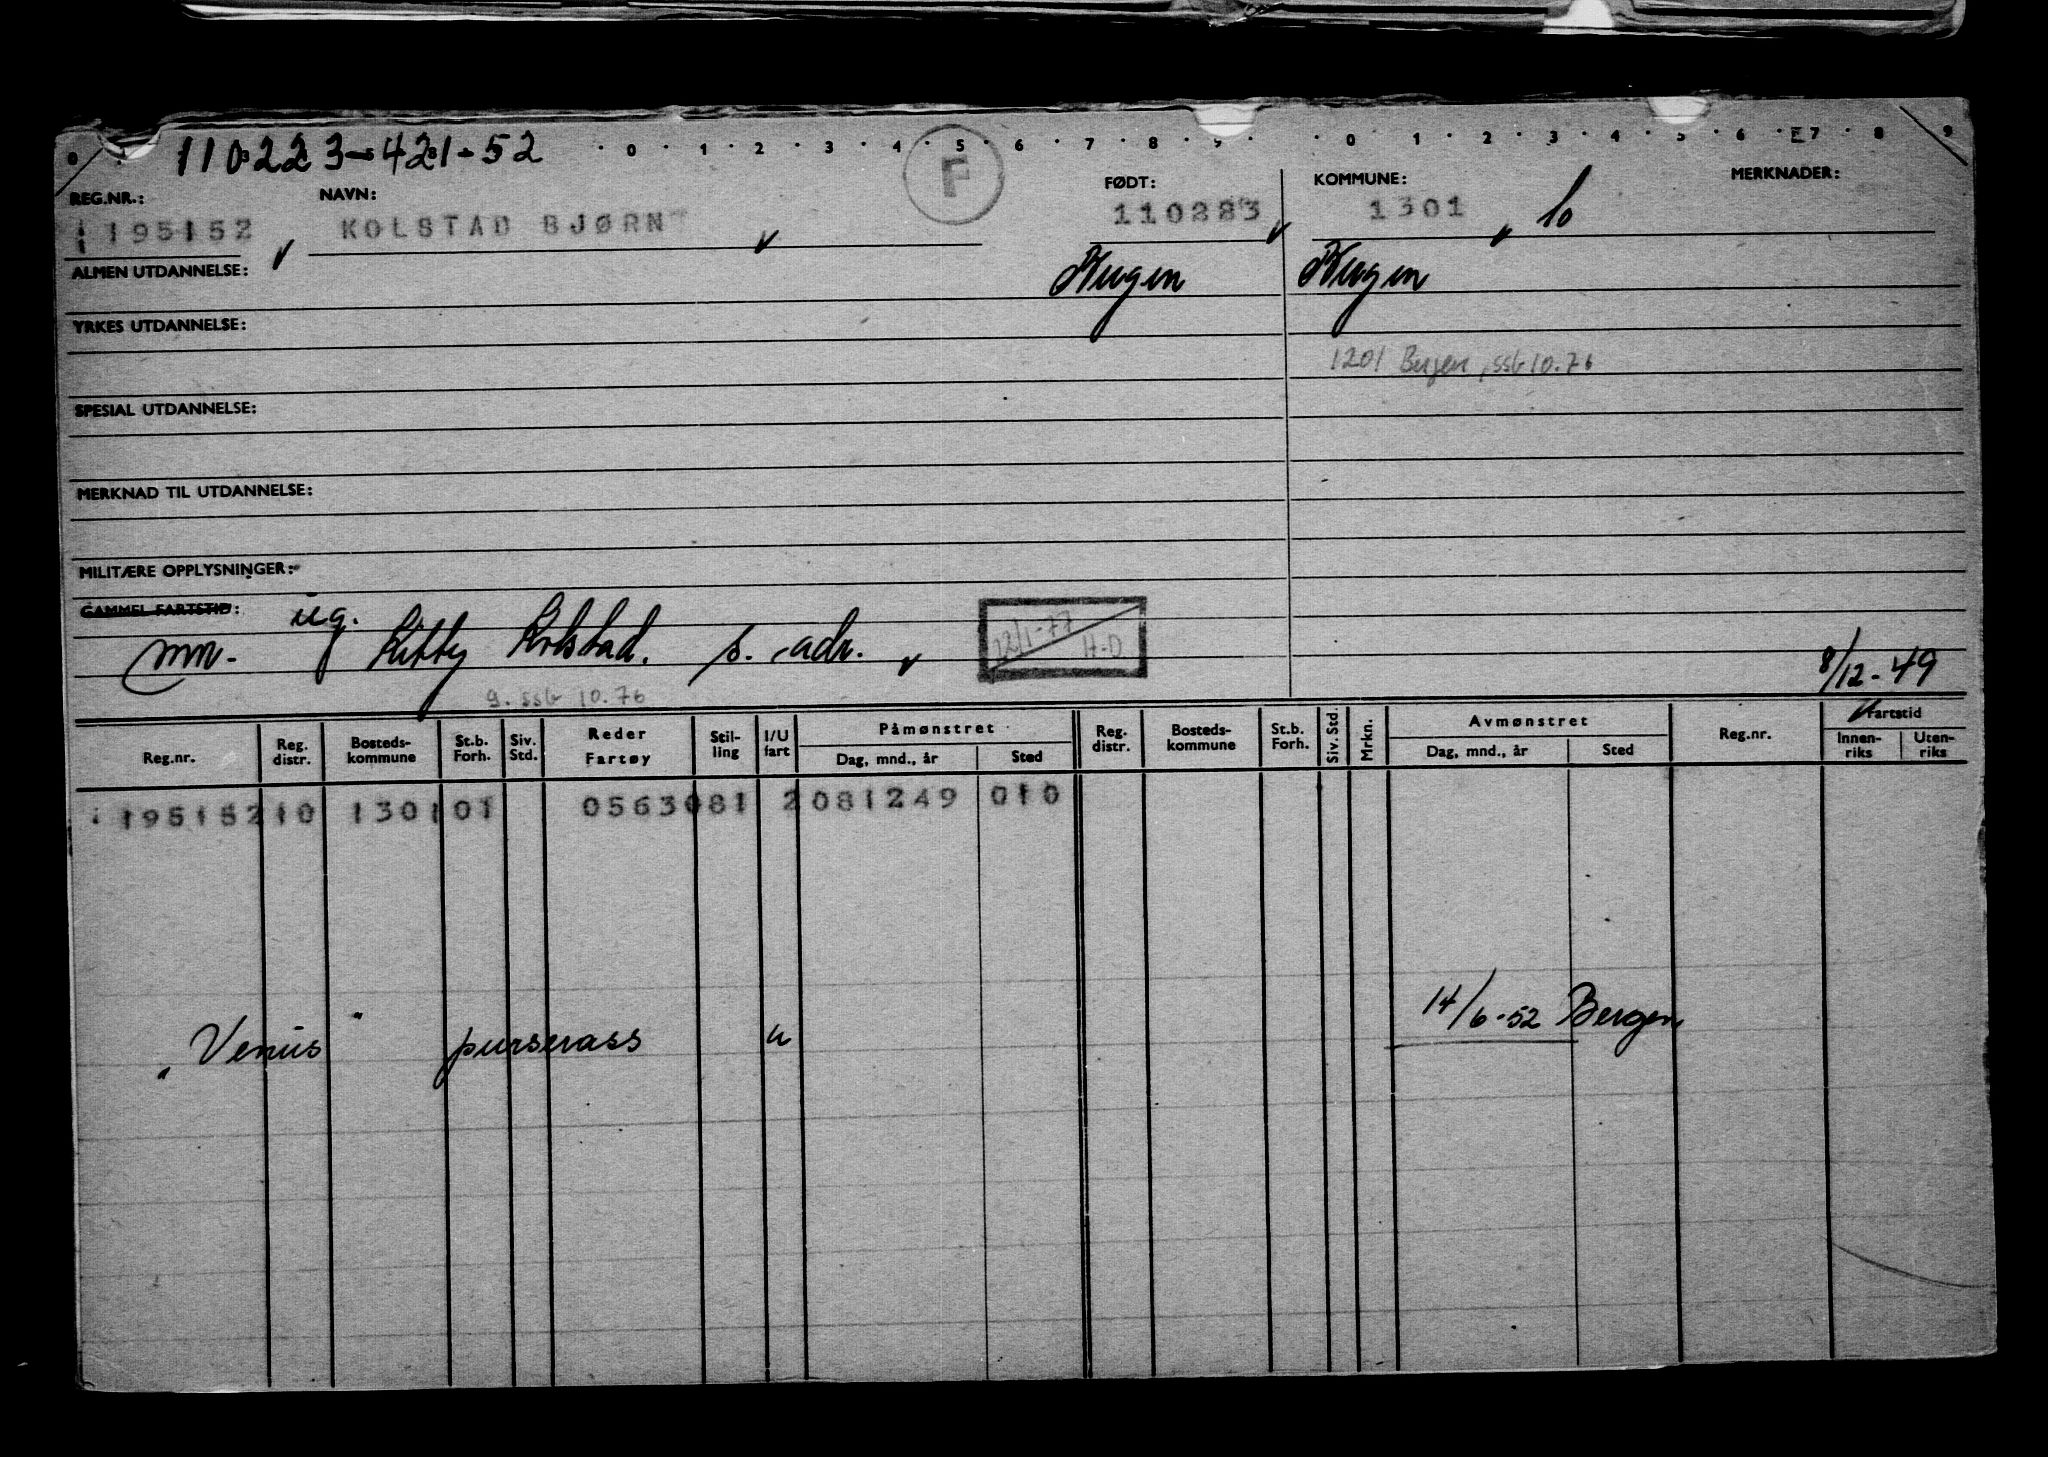 110223-421-52
0 1 2 3 4 5 6 7 8 9 0 1 2 3 4 5 6 7 8 9
F
REG.NR.: NAVN: FØDT: KOMMUNE: MERKNADER:
195152 KOLSTAD BJØRN 110223 1301
ALMEN UTDANNELSE: Bergen Bergen
YRKES UTDANNELSE:
1201 Bergen, ssb 10.76
SPESIAL UTDANNELSE:
MERKNAD TIL UTDANNELSE:
MILITÆRE OPPLYSNINGER:
GAMMEL FARTSTID: ug.
Kitty Kolstad. s. adr. 22/1-77 H-D 8/12-49
g. ssb 10.76
Reg.nr. Reg. distr. Bosteds-kommune St.b. Forh. Siv. Std. Reder Fartøy Stil-ling I/U fart Påmønstret Dag, mnd., år Sted Reg. distr. Bosteds-kommune St.b. Forh. Siv. Std. Mrkn. Avmønstret Dag, mnd., år Sted Reg.nr. Fartstid Innen-riks Uten-riks
195152 10 1301 01 0563081 2 081249 010
"Venus" purserass u 14/6-52 Bergen